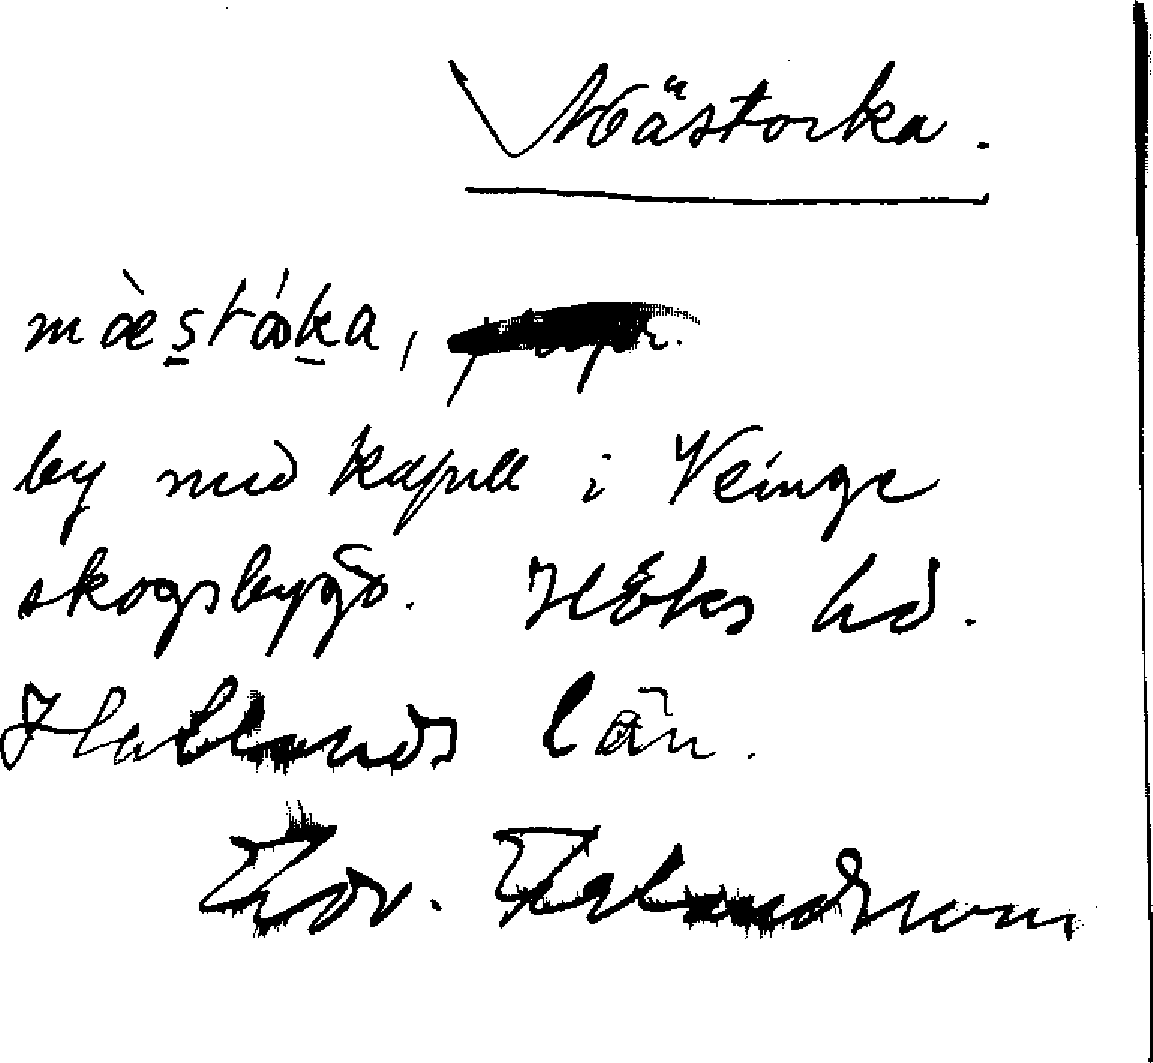 Mästorka.
mæ̀stɷ́ka,
by med kapell i Veinge
skogsbygd. Höks hd.
Hallands län.